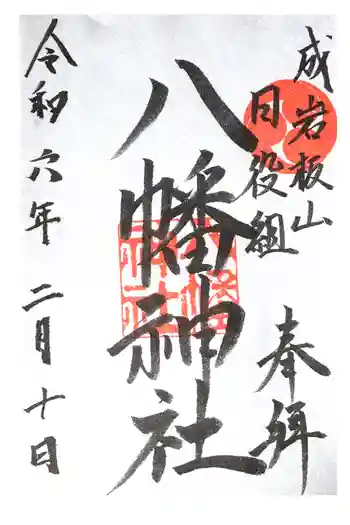 成岩板山
目役組
奉拝
八幡神社
令和六年 二月十日